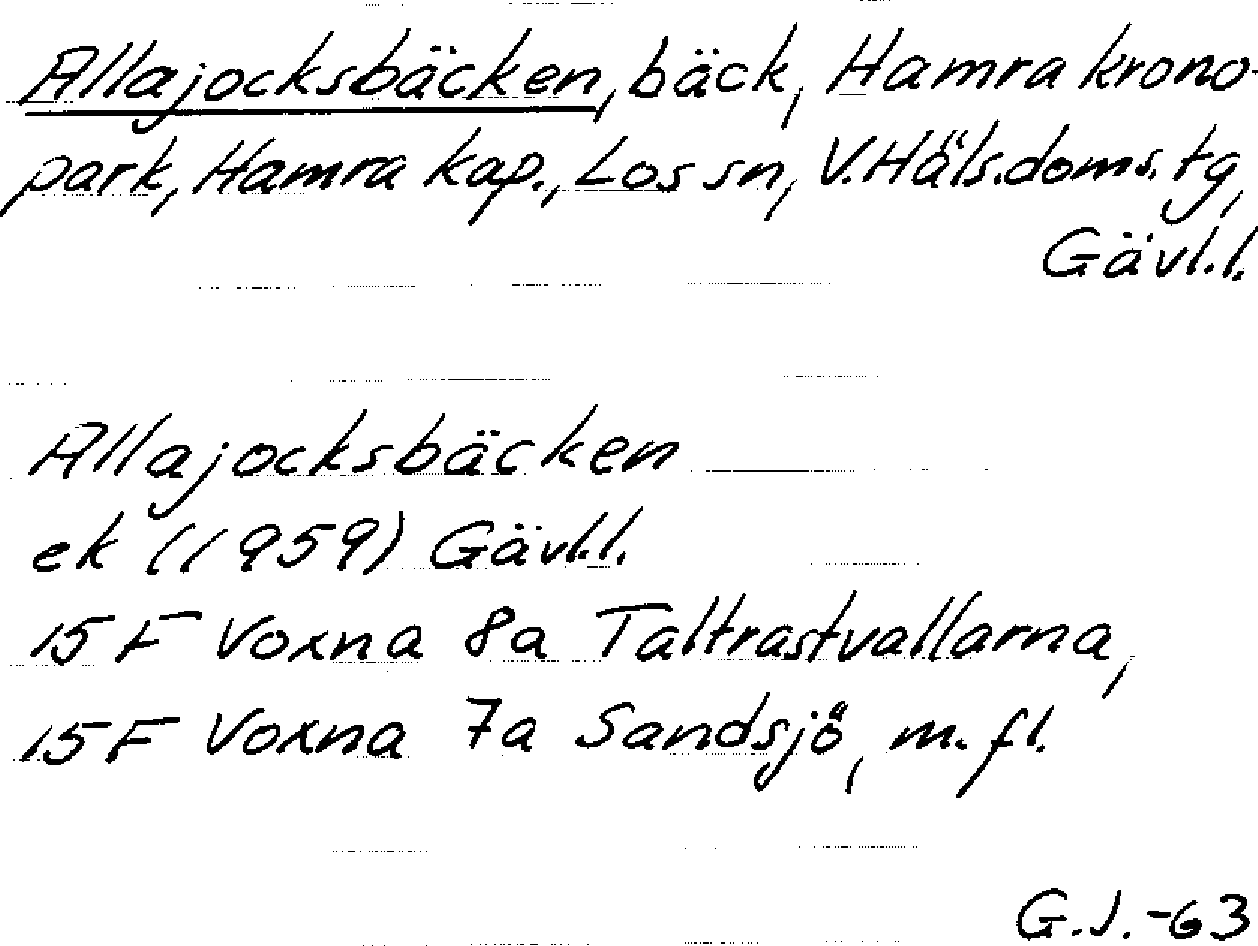 Allajocksbäcken, bäck, Hamra krono-
park, Hamra kap., Los sn, V.Häls.doms.tg,
Gävl.l.
Allajocksbäcken
ek (1959) Gävl.l.
15 F Voxna 8a Taltrastvallarna,
15 F Voxna 7a Sandsjö, m. fl.
G.J. -63